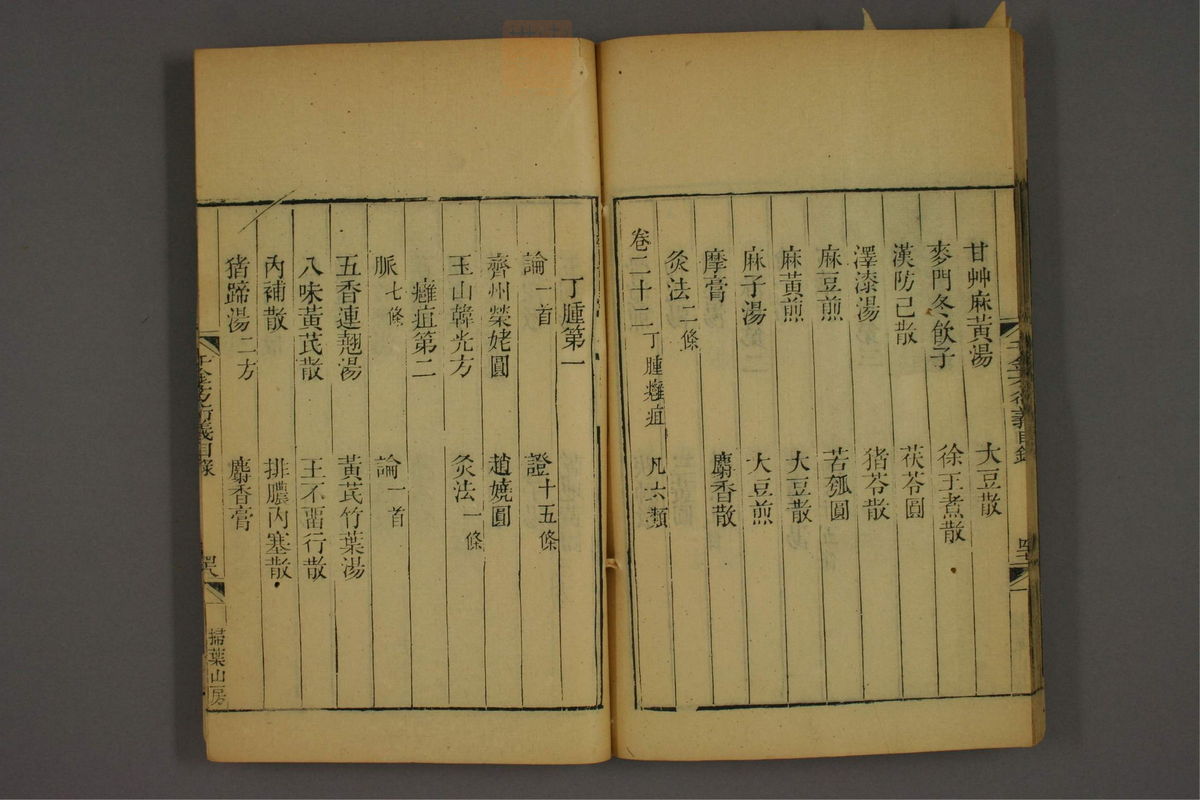 甘艸麻黃湯 大豆散
麥門冬飲子 徐王煮散
漢防己散 茯苓圓
澤漆湯 猪苓散
麻豆煎 苦瓠圓
麻黃煎 大豆散
麻子湯 大豆煎
摩膏 麝香散
灸法二條
卷二十二 丁腫癰疽 凡六類
丁腫第一
論一首 證十五條
齊州榮姥圓 趙嬈圓
玉山韓光方 灸法一條
癰疽第二
脈七條 論一首
五香連翹湯 黃芪竹葉湯
八味黃芪散 王不畱行散
內補散 排膿內塞散
猪蹄湯二方 麝香膏
千金方衍義目錄
掃葉山房